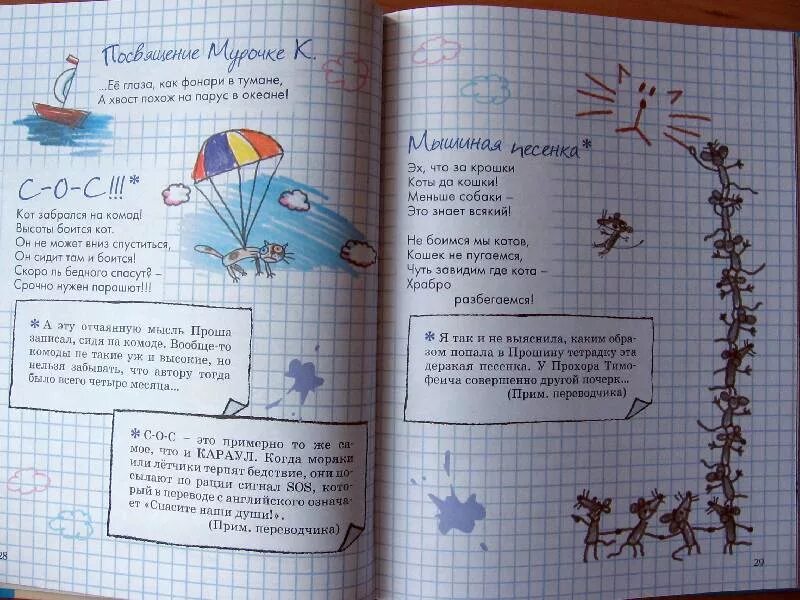 Посвящение Мурочке К.
...Её глаза, как фонари в тумане,
А хвост похож на парус в океане!
С-О-С!!!*
Кот забрался на комод!
Высоты боится кот.
Он не может вниз спуститься,
Он сидит там и боится!
Скоро ль бедного спасут? –
Срочно нужен парашют!!!
* А эту отчаянную мысль Проша
записал, сидя на комоде. Вообще-то
комоды не такие уж и высокие, но
нельзя забывать, что автору тогда
было всего четыре месяца...
* С-О-С – это примерно то же са-
мое, что и КАРАУЛ. Когда моряки
или лётчики терпят бедствие, они по-
сылают по рации сигнал SOS, кото-
рый в переводе с английского означа-
ет «Спасите наши души!».
(Прим. переводчика)
28
Мышиная песенка*
Эх, что за крошки
Коты да кошки!
Меньше собаки –
Это знает всякий!
Не боимся мы котов,
Кошек не пугаемся,
Чуть завидим где кота –
Храбро
разбегаемся!
* Я так и не выяснила, каким обра-
зом попала в Прошину тетрадку эта
дерзкая песенка. У Прохора Тимо-
феича совершенно другой почерк...
(Прим. переводчика)
29